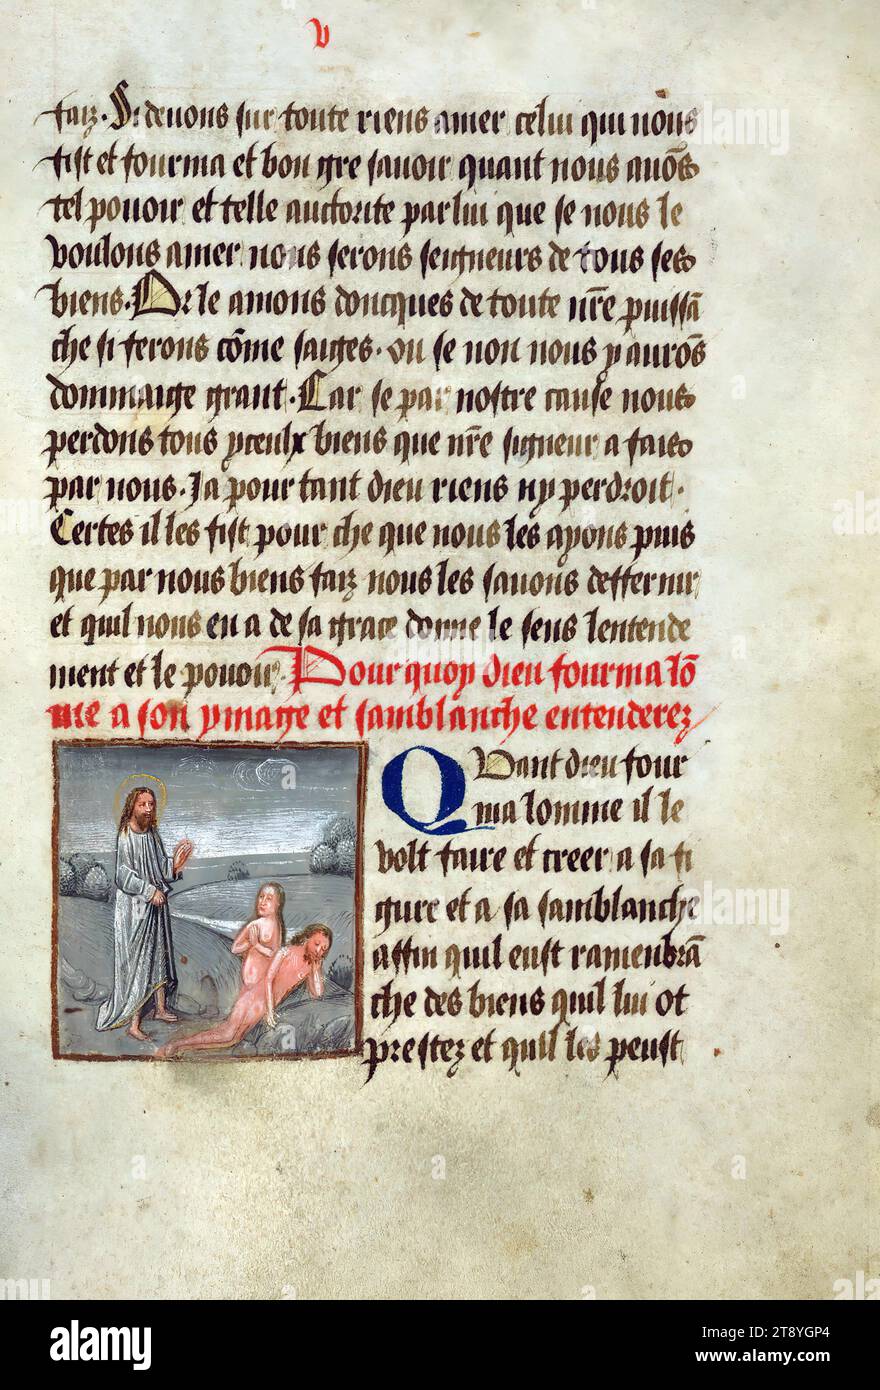 v
faiz. Si deuons sur toute riens amer celui qui nous
fist et fourma et bon gre sauoir quant nous auōs
tel pouoir et telle auctorite par lui que se nous le
voulons amer nous serons seigneurs de tous ses
biens. Or le amons doncques de toute nr̄e puissā
che si ferons cōme saiges. ou se non nous y aurōs
dommaige grant. Car se par nostre cause nous
perdons tous yceulx biens que nr̄e signeur a fais
par nous. Ja pour tant dieu riens ny perdroit.
Certes il les fist pour che que nous les ayons puis
que par nous biens faiz nous les sauons deffernir
et quil nous en a de sa grace donne le sens lentende
ment et le pouoir. Pour quoy dieu fourma lō
me a son ymage et samblanche entenderez
Quant dieu four
ma lomme il le
volt faire et creer a sa fi
gure et a sa samblanche
affin quil eust ramenbrā
che des biens quil lui ot
prestez et quil les peust
alamy
Image ID: 2T8YGP4
www.alamy.com